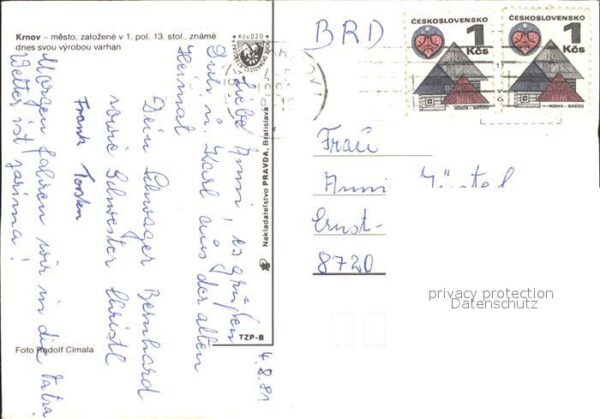 Krnov – město, založené v 1. pol. 13. stol., známé
dnes svou výrobou varhan
Liebe Anni, es grüßen
Dich u. Karl aus der alten
Heimat
Dein Schwager Bernhard
sowie Schwester Christl
Frank Torsten
Morgen fahren wir in die Tatra
Wetter ist prima!
4.8.81
Foto Rudolf Cimala
TZP-B
Nakladatelstvo PRAVDA, Bratislava
Kčs 0,20
BRD
ČESKOSLOVENSKO
1
Kčs
ČESKOSLOVENSKO
1
Kčs
Frau
Anni
Ernst-
8720
privacy protection
Datenschutz